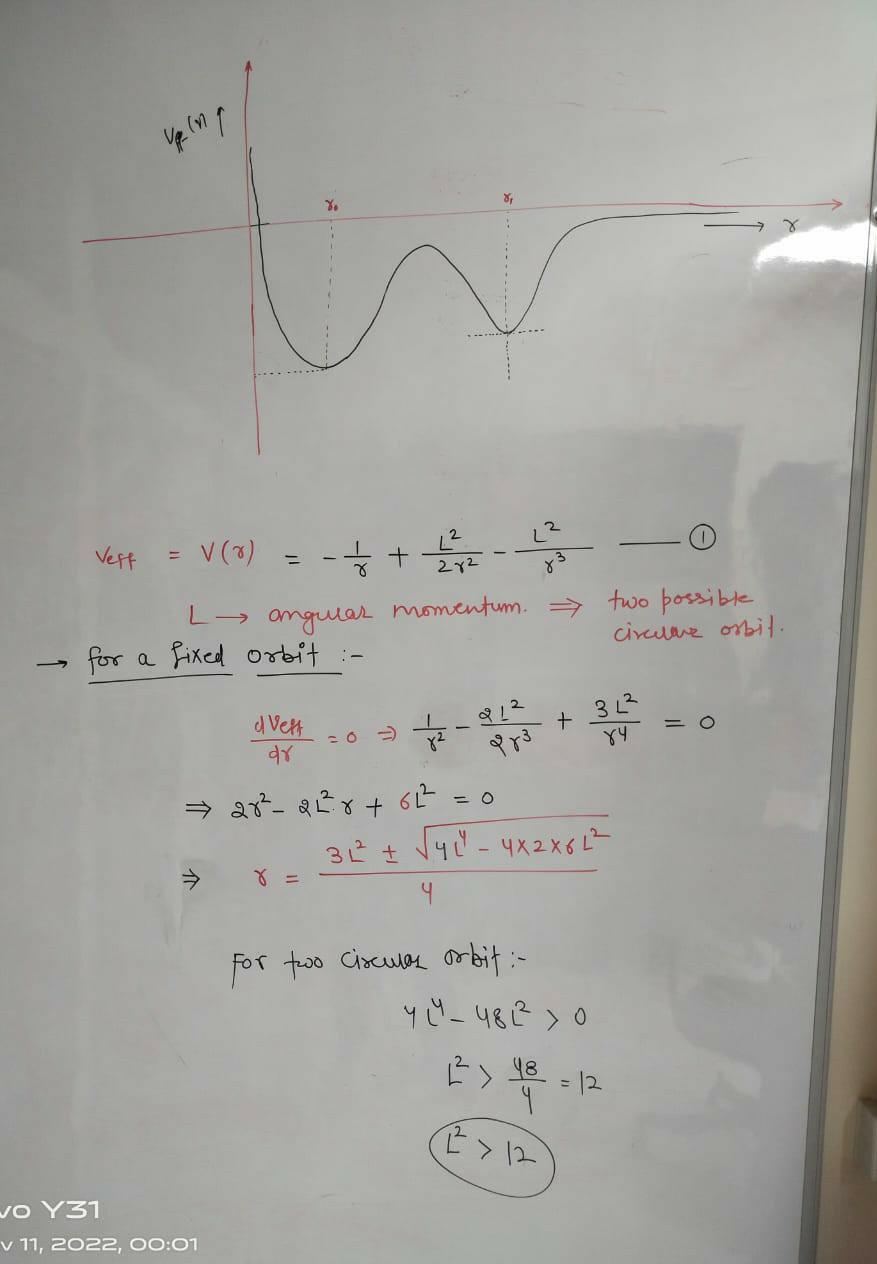 V_eff(r) ↑
r₀ r₁
→ r
Veff = V(r) = -1/r + L²/2r² - L²/r³ —— ①
L → angular momentum. ⇒ two possible
circular orbit.
→ for a fixed orbit :-
dVeff/dr = 0 ⇒ 1/r² - 2L²/2r³ + 3L²/r⁴ = 0
⇒ 2r² - 2L².r + 6L² = 0
⇒ r = (3L² ± √(4L⁴ - 4×2×6L²))/4
For two circular orbit :-
4L⁴ - 48L² > 0
L² > 48/4 = 12
L² > 12
vo Y31
v 11, 2022, 00:01